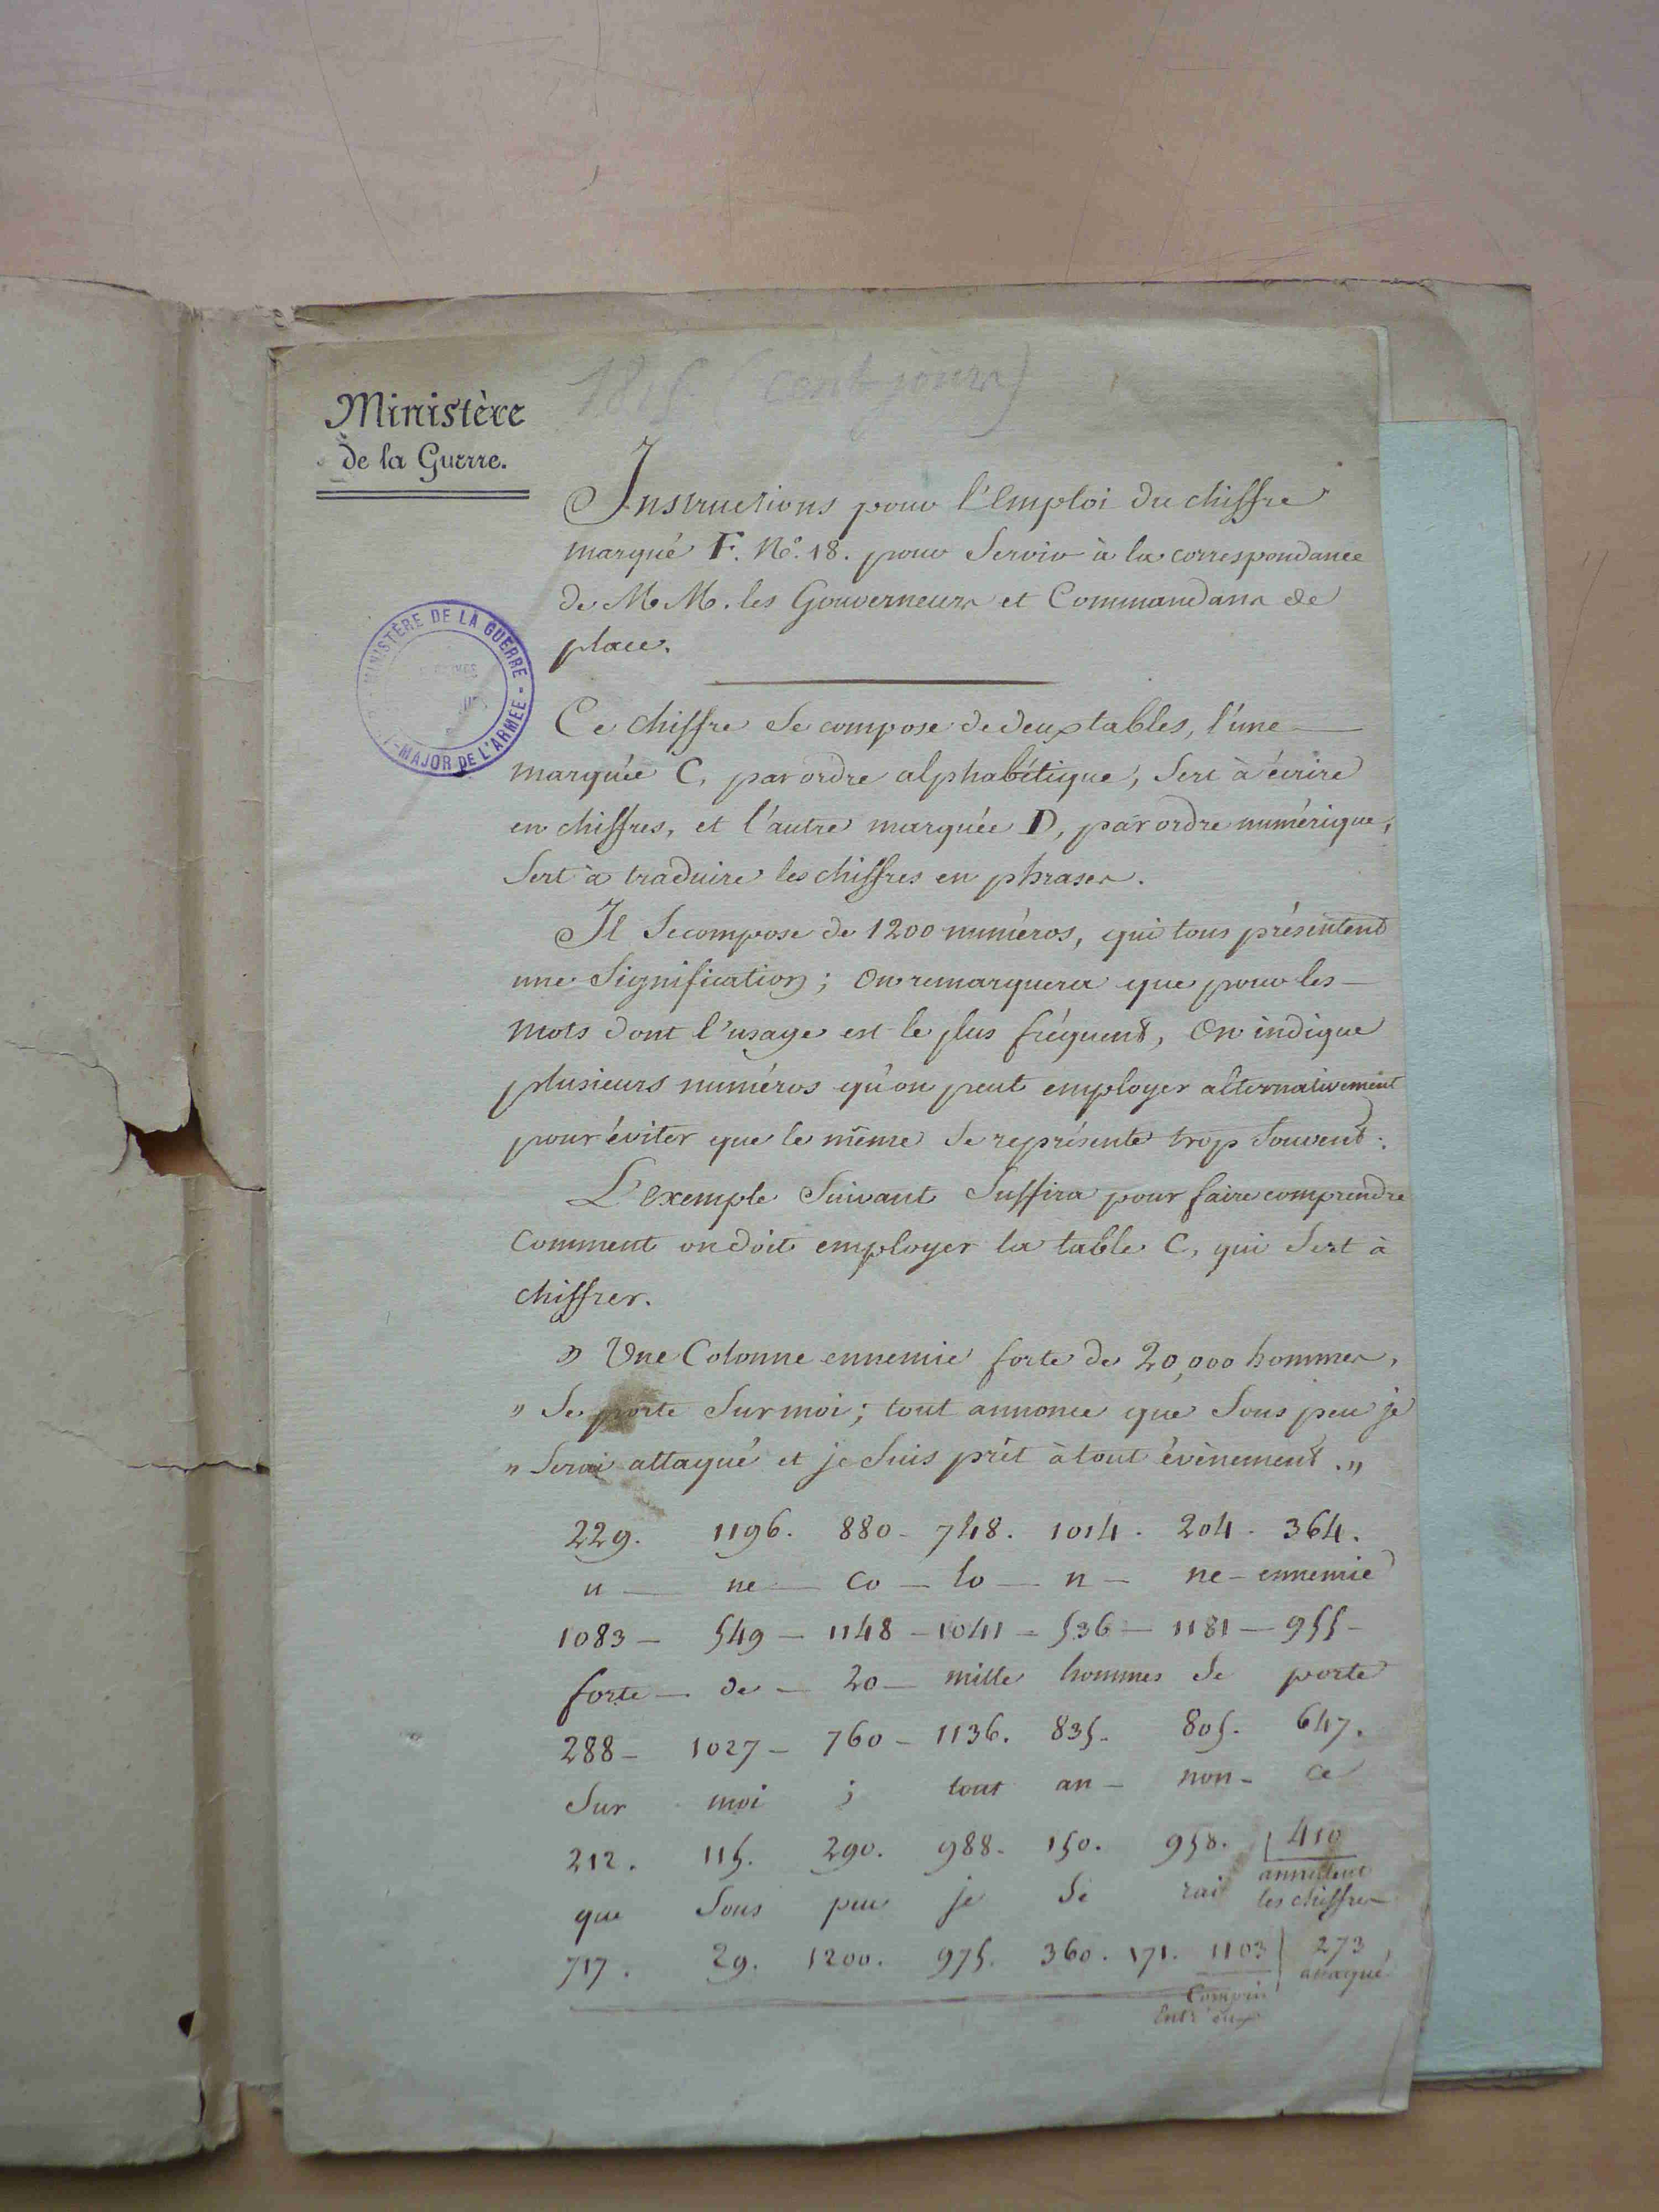 1815 (cent jours)
Ministère
de la Guerre.
Instructions pour l'Emploi du chiffre
marqué F. N.° 18. pour Servir à la correspondance
de M M. les Gouverneurs et Commandans de
place.
MINISTÈRE DE LA GUERRE - -MAJOR DE L'ARMÉE
Ce chiffre Se compose de deux tables, l'une
marquée C, par ordre alphabétique, Sert à écrire
en chiffres, et l'autre marquée D, par ordre numérique,
Sert à traduire les chiffres en phrases.
Il Se compose de 1200 numéros, qui tous présentent
une Signification ; On remarquera que pour les
mots dont l'usage est le plus fréquent, On indique
plusieurs numéros qu'on peut employer alternativement
pour éviter que le même Se représente trop Souvent.
L'exemple Suivant Suffira pour faire comprendre
Comment on doit employer la table C, qui Sert à
chiffrer.
" Une Colonne ennemie forte de 20,000 hommes,
" Se porte Sur moi ; tout annonce que Sous peu je
" Serai attaqué et je Suis prêt à tout évènement. "
229. 1196. 880 - 748. 1014. 204. 364.
u — ne — co — lo — n — ne - ennemie
1083 — 549 — 1148 — 1041 — 536 — 1181 — 955 -
forte — de — 20 — mille hommes Se porte
288 - 1027 - 760 - 1136. 835. 805. 647.
Sur moi ; tout an - non - ce
212. 115. 290. 988. 150. 958. | 410
annullent
les chiffres
que Sous peu je Se rai
717. 29. 1200. 975. 360. 171. 1103 | 273
attaqué
Compris
Entr'eux